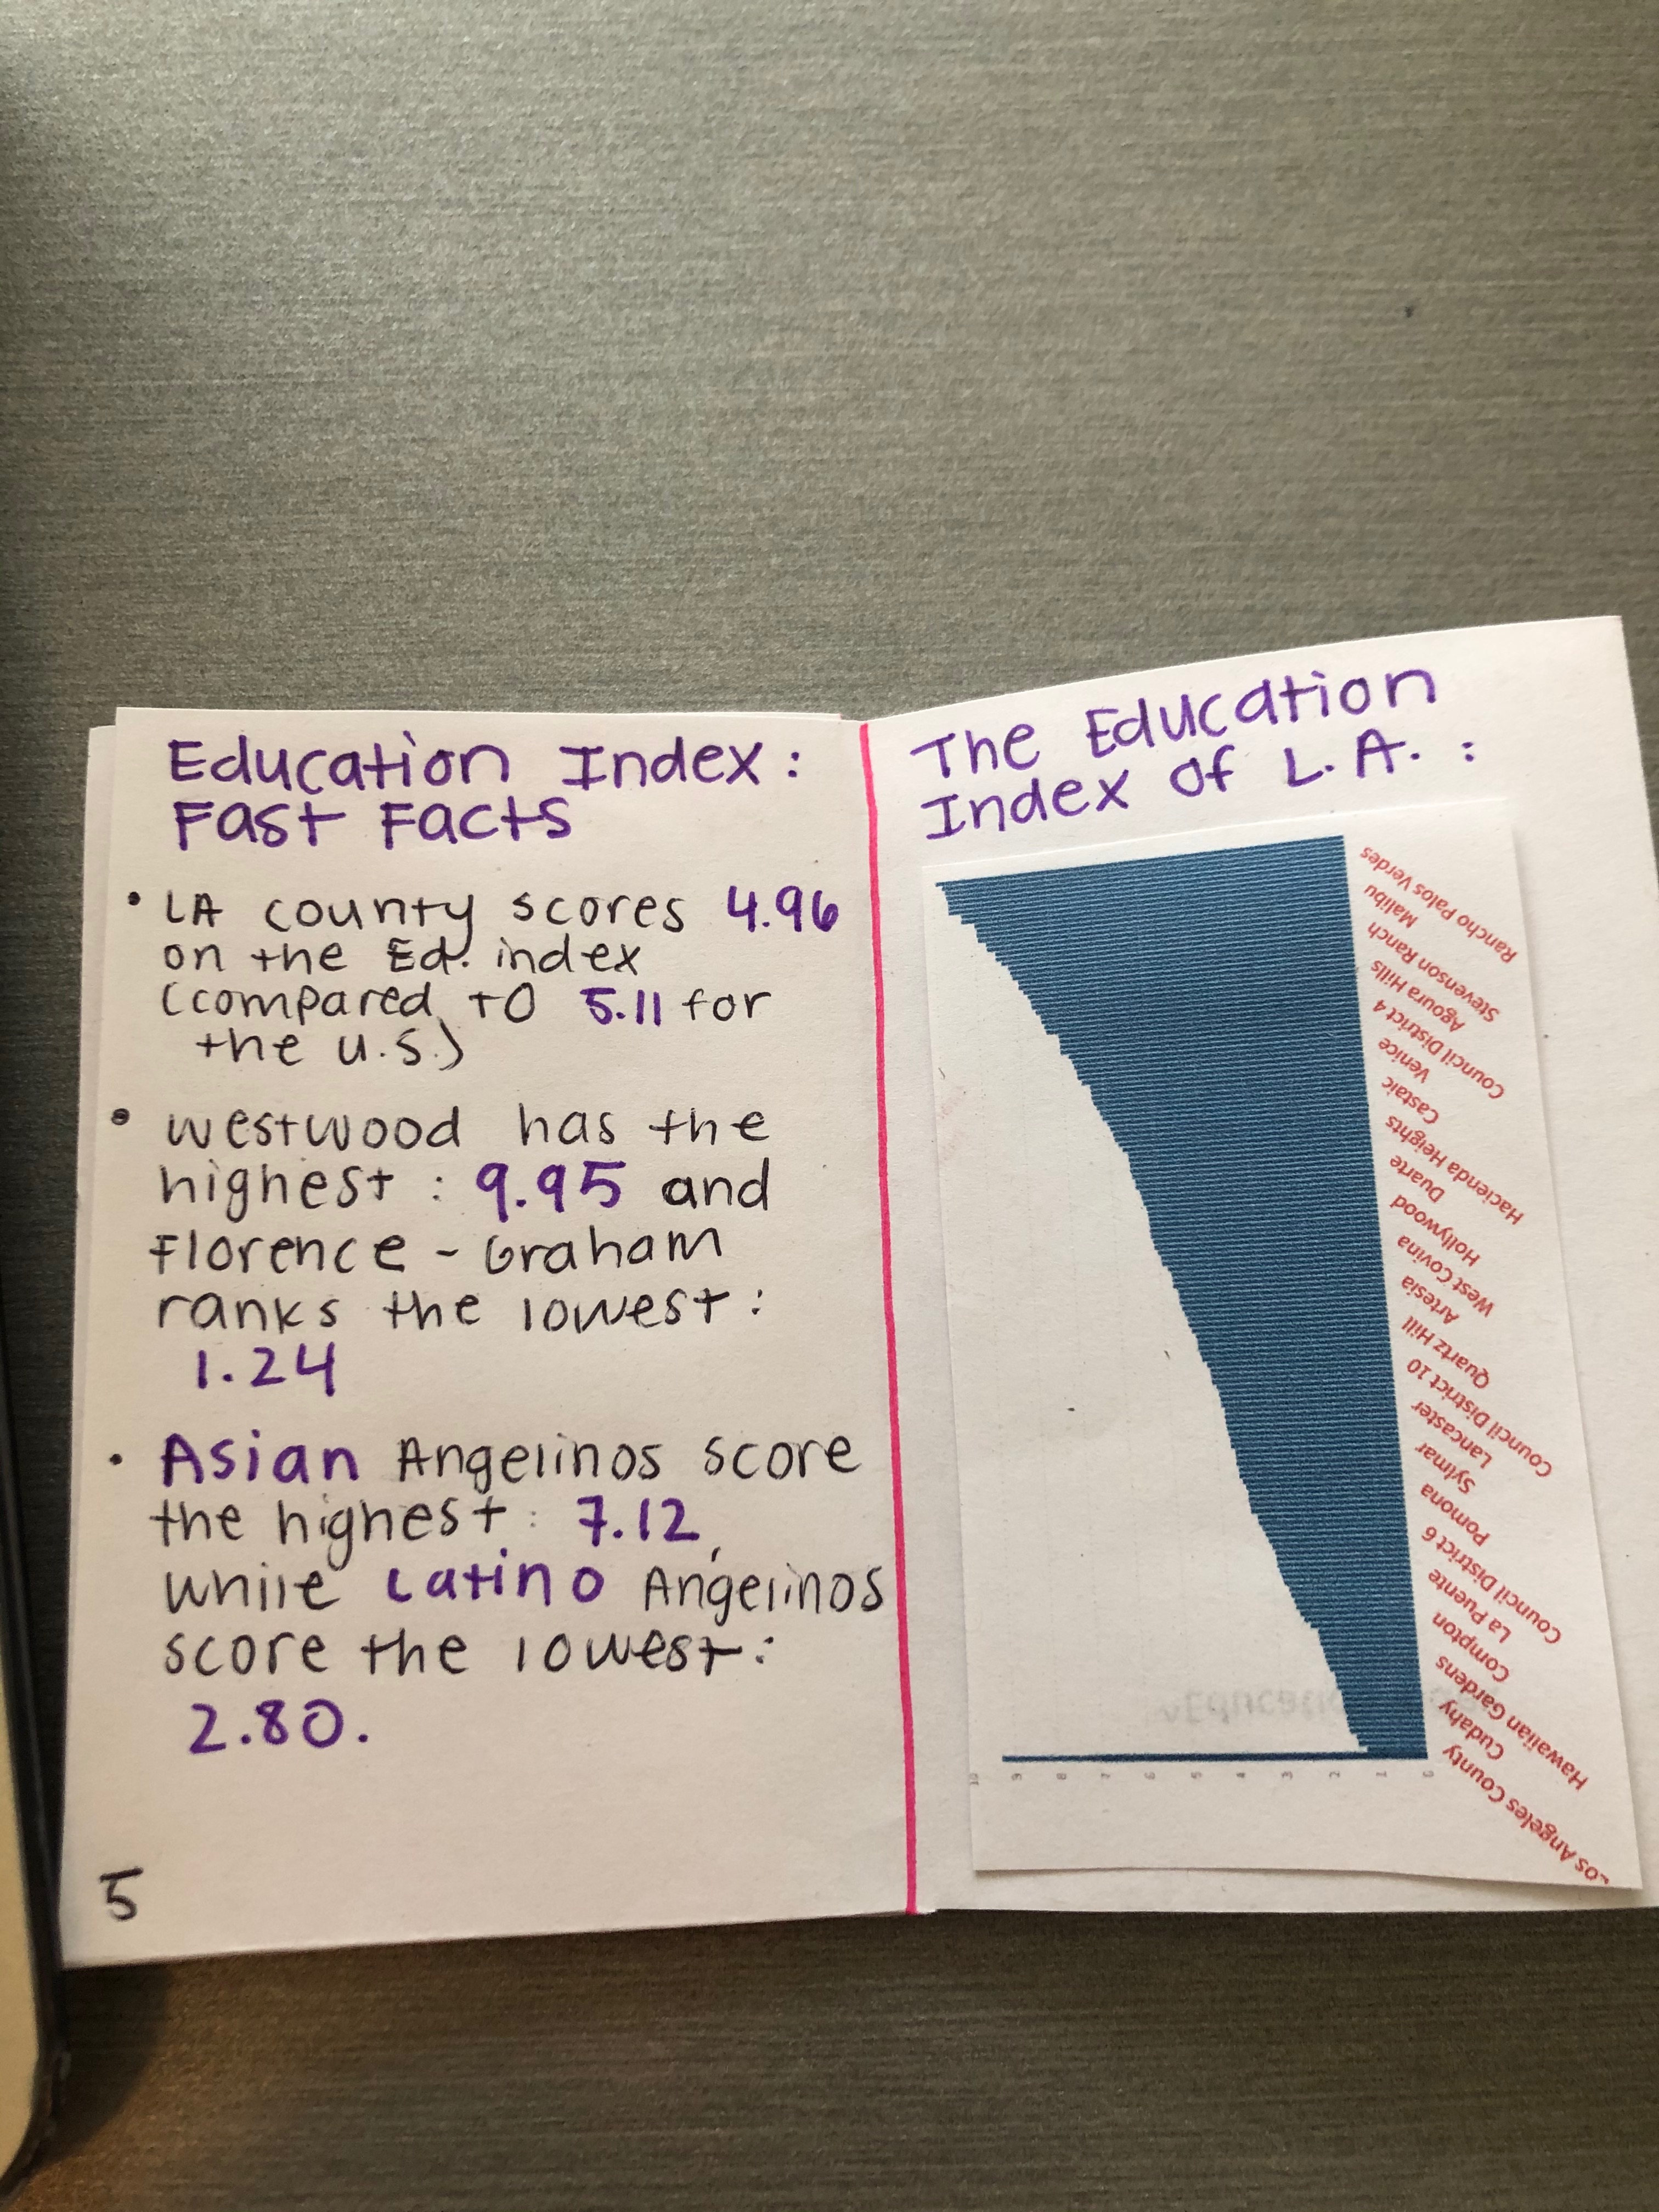 Education Index:
Fast Facts
• LA county scores 4.96
on the Ed. index
(compared to 5.11 for
the U.S.)
• Westwood has the
highest: 9.95 and
Florence - Graham
ranks the lowest:
1.24
• Asian Angelinos score
the highest: 7.12,
while Latino Angelinos
score the lowest:
2.80.
5
The Education
Index of L.A.:
Rancho Palos Verdes
Malibu
Stevenson Ranch
Agoura Hills
Council District 4
Venice
Castaic
Hacienda Heights
Duarte
Hollywood
West Covina
Artesia
Quartz Hill
Council District 10
Lancaster
Sylmar
Pomona
Council District 6
La Puente
Compton
Hawaiian Gardens
Cudahy
Los Angeles County
10
9
8
7
6
5
4
3
2
1
0